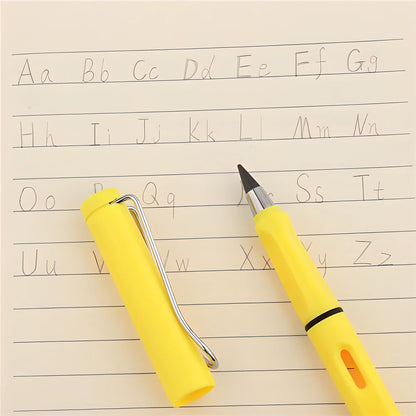 Aa Bb Cc Dd Ee Ff Gg
Hh Ii Jj Kk Ll Mm Nn
Oo P Qq Ss Tt
Uu V w Xx Yy Zz